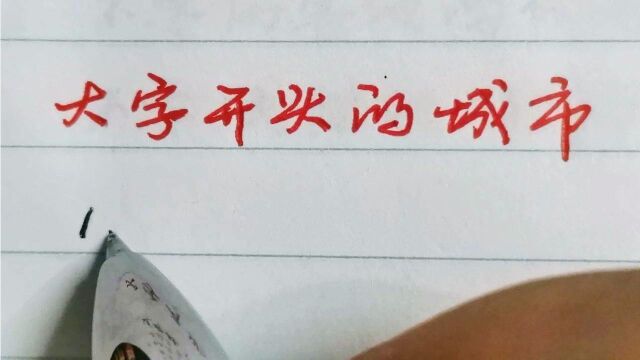 大字开头的城市